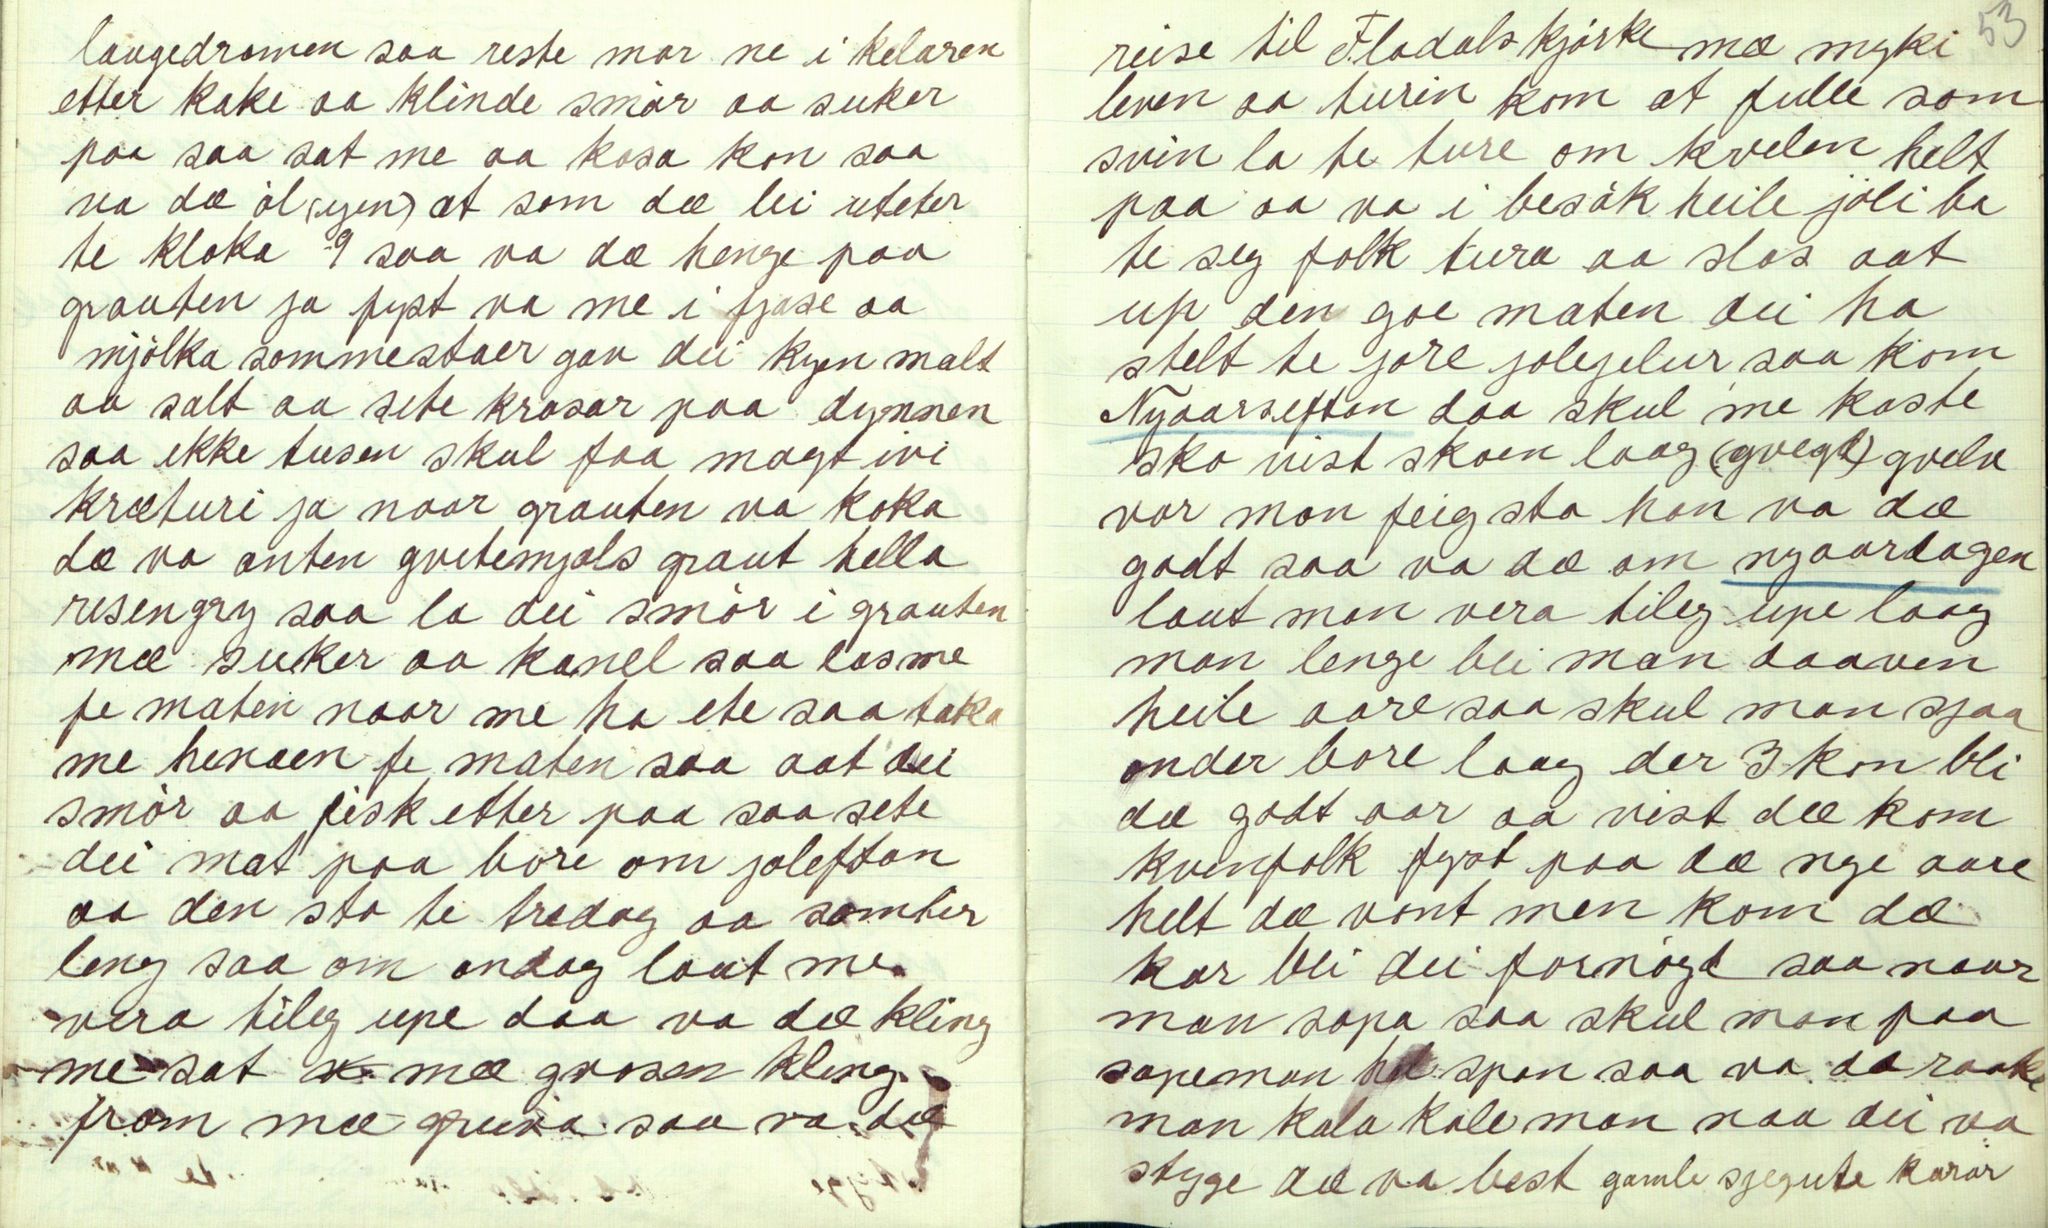 laugedromen saa reste mor ne i kelaren
etter kake aa klinde smör aa suker
paa saa sat me aa kosa kon saa
va dæ öl (igen) æt som dæ lei uteter
te kloka 9 saa va dæ henge paa
grauten ja fyst va me i fjøse aa
mjölka sommestaer gav dei kyen malt
aa salt aa sete krosar paa dynnen
saa ikke tusen skul faa magt ivi
kræturi ja naar grauten va koka
dæ va anten gvitemjøls graut hella
risengry saa la dei smör i grauten
mæ suker aa kanel saa las me
fe maten naar me ha ete saa taka
me henaen fe maten saa aat dei
smör aa fisk etter paa saa sete
dei mat paa bore om joleftan
aa den sto te tredag aa somtir
leng saa om andag laut me
vera tileg upe daa va dæ kling
me sat mæ grosen kling
from mæ grueiva saa va dæ
53
reise til Fladalskjörke mæ myki
leven aa turin kom æt fulle som
svin la te ture om kvelen helt
paa aa va i besök heile joli ba
te seg folk tura aa slos aat
up den goe maten dei ha
stelt te jore jolegelur saa kom
Nyaarseftan daa skul me kaste
sko vist skoen laag (gvegl) gvelv
var man feig sto han va dæ
godt saa va dæ om nyaardagen
laut man vera tileg upe laag
man lenge blei man daaven
heile aare saa skul man sjaa
onder bore laag der 3 kon bli
dæ godt aar aa vist dæ kom
kvenfolk fyst paa dæ nye aare
helt dæ vont men kom dæ
kar blei dei fornögd saa naar
man sopa saa skul man paa
sopeman spon saa va dæ raake
man kola kole man naa dei va
styge dæ va best gamle sjegute karar